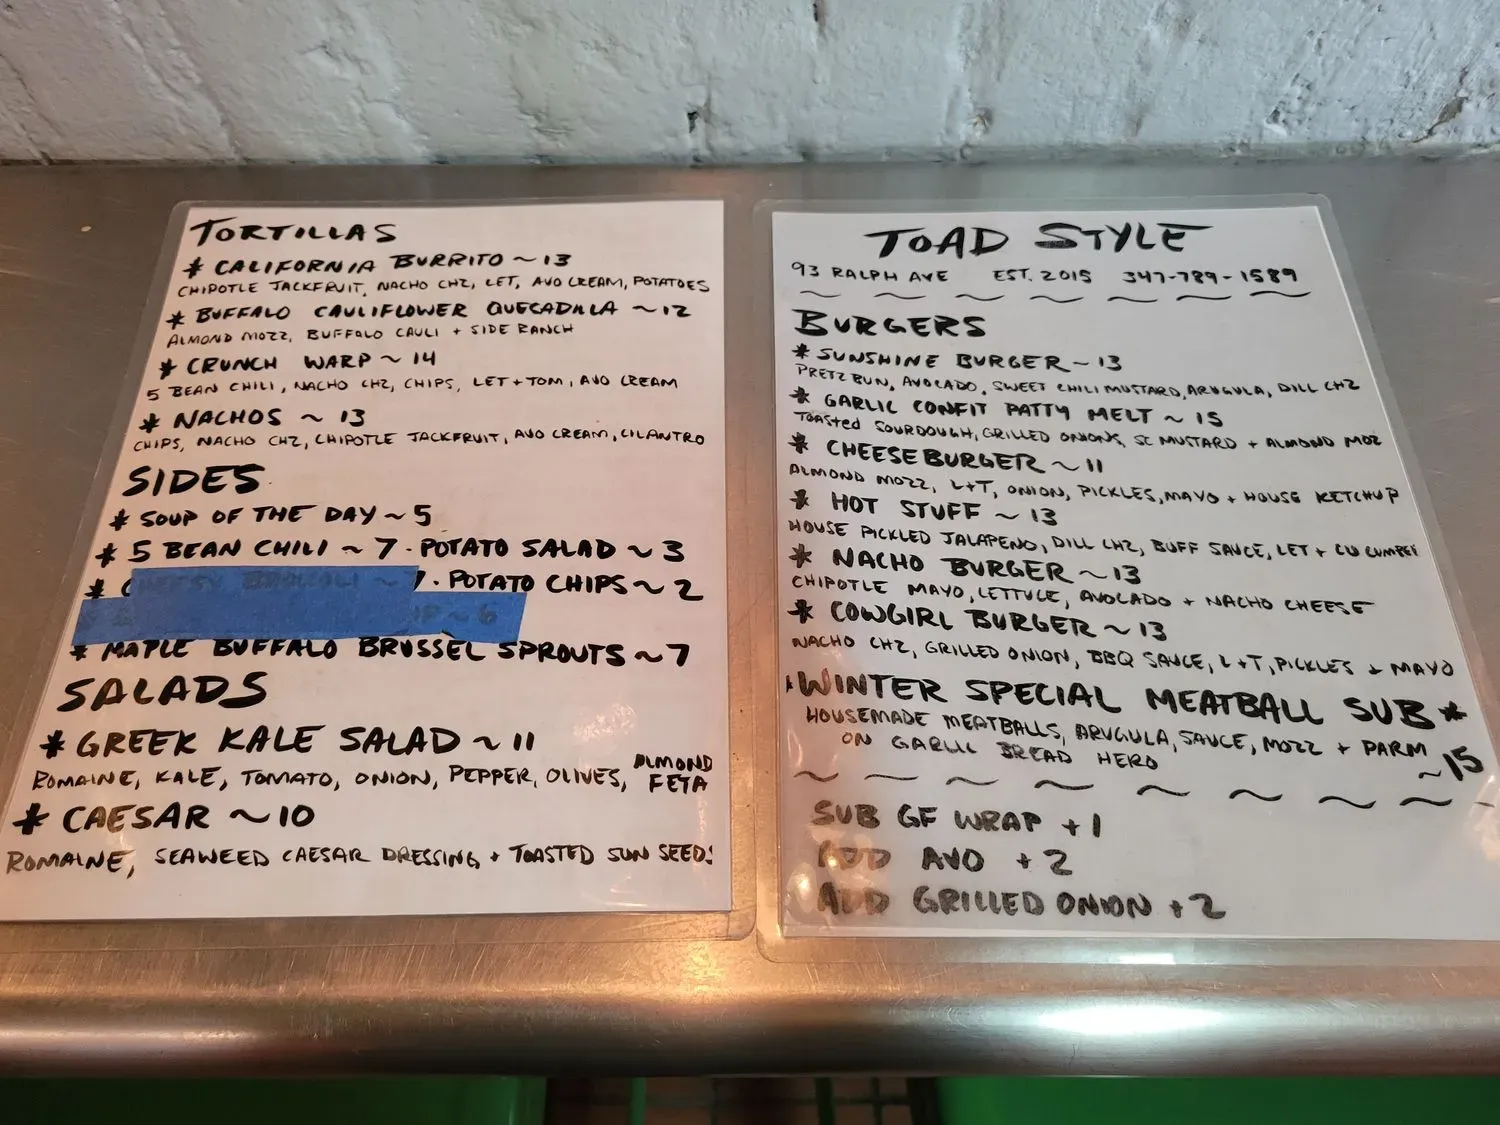 TORTILLAS
* CALIFORNIA BURRITO ~ 13
CHIPOTLE JACKFRUIT, NACHO CHZ, LET, AVO CREAM, POTATOES
* BUFFALO CAULIFLOWER QUECADILLA ~ 12
ALMOND MOZZ, BUFFALO CAULI + SIDE RANCH
* CRUNCH WARP ~ 14
5 BEAN CHILI, NACHO CHZ, CHIPS, LET + TOM, AVO CREAM
* NACHOS ~ 13
CHIPS, NACHO CHZ, CHIPOTLE JACKFRUIT, AVO CREAM, CILANTRO
SIDES
* SOUP OF THE DAY ~ 5
* 5 BEAN CHILI ~ 7 · POTATO SALAD ~ 3
* CHEESY BROCCOLI ~ 7 · POTATO CHIPS ~ 2
~ 6
* MAPLE BUFFALO BRUSSEL SPROUTS ~ 7
SALADS
* GREEK KALE SALAD ~ 11
ROMAINE, KALE, TOMATO, ONION, PEPPER, OLIVES, ALMOND FETA
* CAESAR ~ 10
ROMAINE, SEAWEED CAESAR DRESSING + TOASTED SUN SEEDS
TOAD STYLE
93 RALPH AVE EST. 2015 347-789-1589
BURGERS
* SUNSHINE BURGER ~ 13
PRETZ BUN, AVOCADO, SWEET CHILI MUSTARD, ARUGULA, DILL CHZ
* GARLIC CONFIT PATTY MELT ~ 15
TOASTED SOURDOUGH, GRILLED ONIONS, SC MUSTARD + ALMOND MOZ
* CHEESEBURGER ~ 11
ALMOND MOZZ, L+T, ONION, PICKLES, MAYO + HOUSE KETCHUP
* HOT STUFF ~ 13
HOUSE PICKLED JALAPENO, DILL CHZ, BUFF SAUCE, LET + CUCUMBER
* NACHO BURGER ~ 13
CHIPOTLE MAYO, LETTUCE, AVOCADO + NACHO CHEESE
* COWGIRL BURGER ~ 13
NACHO CHZ, GRILLED ONION, BBQ SAUCE, L+T, PICKLES + MAYO
* WINTER SPECIAL MEATBALL SUB *
HOUSEMADE MEATBALLS, ARUGULA, SAUCE, MOZZ + PARM
ON GARLIC BREAD HERO ~ 15
SUB GF WRAP + 1
ADD AVO + 2
ADD GRILLED ONION + 2